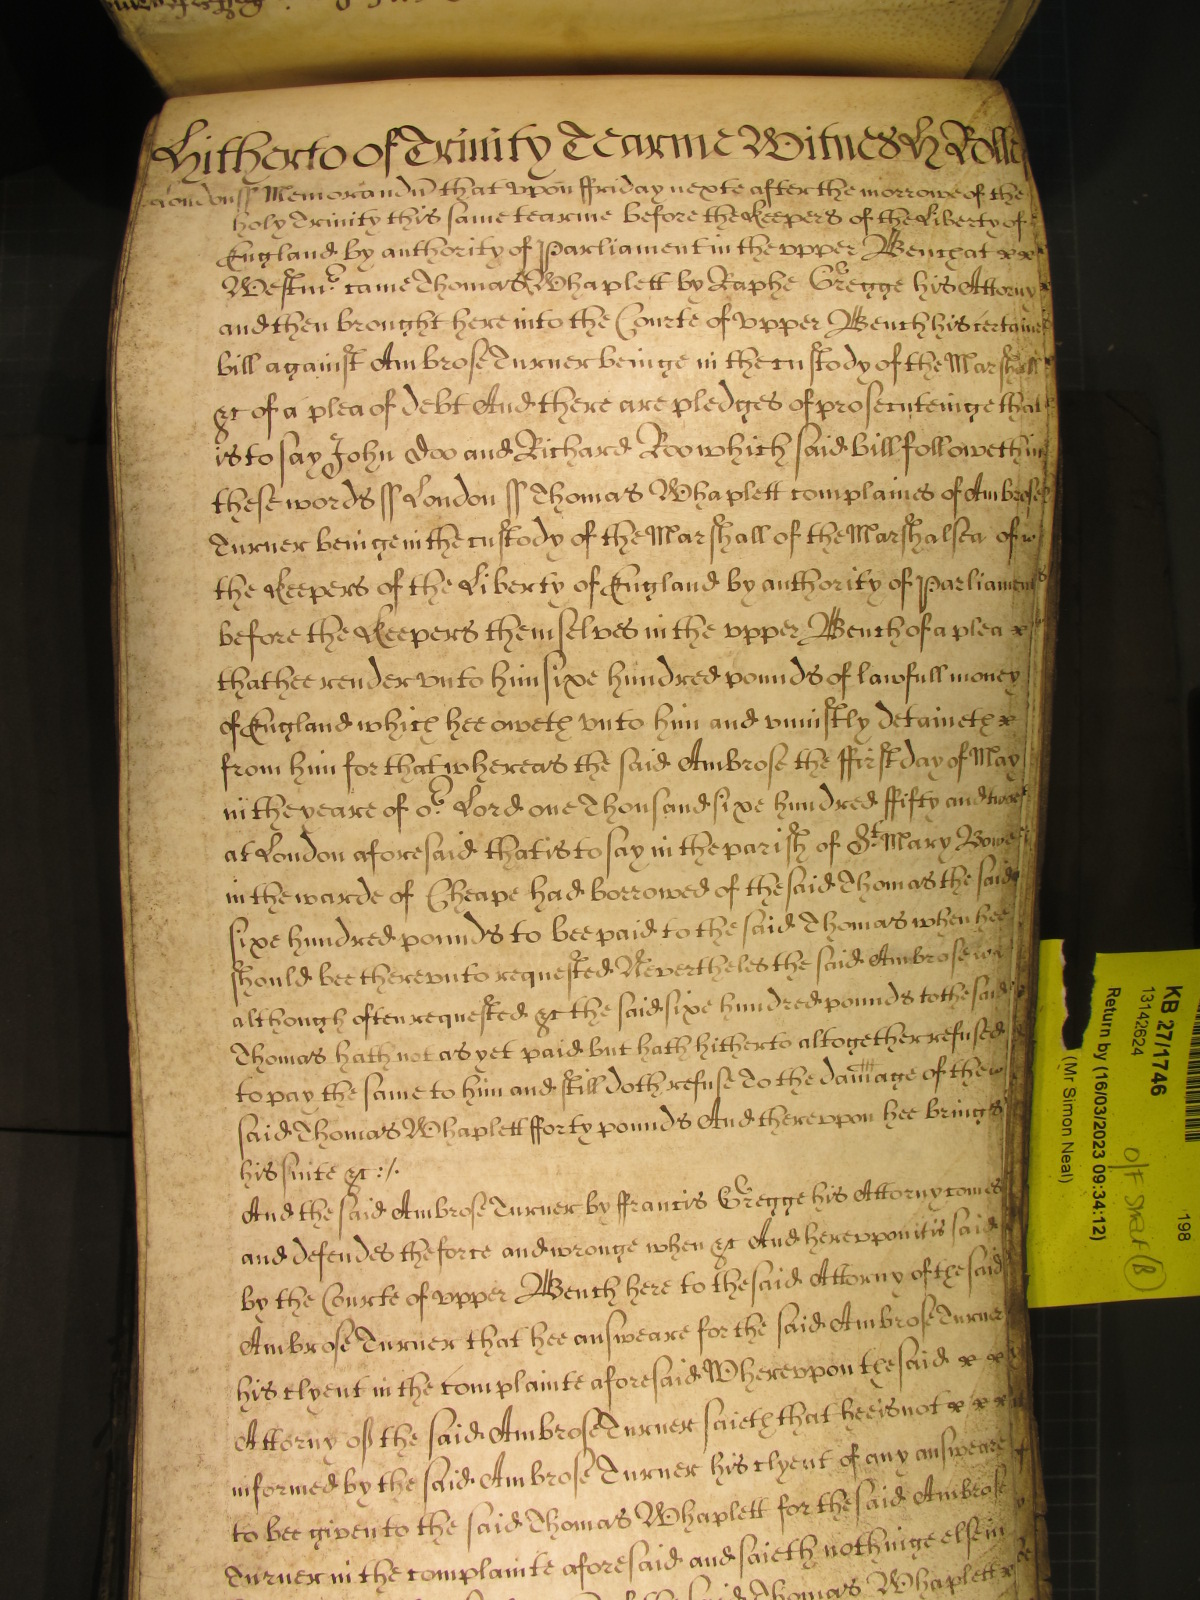 Hitherto of Trinity Tearme Witnes H Rolle
London ss Memorandū that vpon ffriday nexte after the morrowe of the
holy Trinity this same tearme before the Keepers of the Liberty of
England by authority of Parliament in the vpper Bench at x x
Westmr came Thomas Whaplett by Raphe Gregge his Attorny
and then brought here into the Courte of vpper Bench his certaine
bill against Ambrose Turner beinge in the custody of the Marshall
&c of a plea of debt And there are pledges of prosecuteinge that
is to say John Doo and Richard Roo which said bill followeth in
these words ss London ss Thomas Whaplett complaines of Ambrose
Turner beinge in the custody of the Marshall of the Marshalsea of
the Keepers of the Liberty of England by authority of Parliament
before the Keepers themselves in the vpper Bench of a plea x
that hee render vnto him sixe hundred pounds of lawfull money
of England which hee oweth vnto him and vniustly detaineth x
from him for that whereas the said Ambrose the ffirst day of May
in the yeare of or Lord one Thousand sixe hundred ffifty and twoe
at London aforesaid that is to say in the parish of St Mary Bowe
in the warde of Cheape had borrowed of the said Thomas the said
sixe hundred pounds to bee paid to the said Thomas when hee
should bee therevnto requested Nevertheles the said Ambrose
although often requested &c the said sixe hundred pounds to the said
Thomas hath not as yet paid but hath hitherto altogether refused
to pay the same to him and still doth refuse To the damage of the
said Thomas Whaplett fforty pounds And therevpon hee brings
his suite &c :/.
And the said Ambrose Turner by ffrancis Gregge his Attorny comes
and defendes the force and wronge when &c And herevpon it is said
by the Courte of vpper Bench here to the said Attorny of the said
Ambrose Turner that hee answeare for the said Ambrose Turner
his clyent in the complainte aforesaid Wherevpon the said x x
Attorny of the said Ambrose Turner saieth that hee is not x x x
informed by the said Ambrose Turner his clyent of any answeare
to bee given to the said Thomas Whaplett for the said Ambrose
Turner in the complainte aforesaid and saieth nothinge else in
said Thomas Whaplett
KB 27/1746
13142624
Return by (16/03/2023 09:34:12)
(Mr Simon Neal)
198
O/F